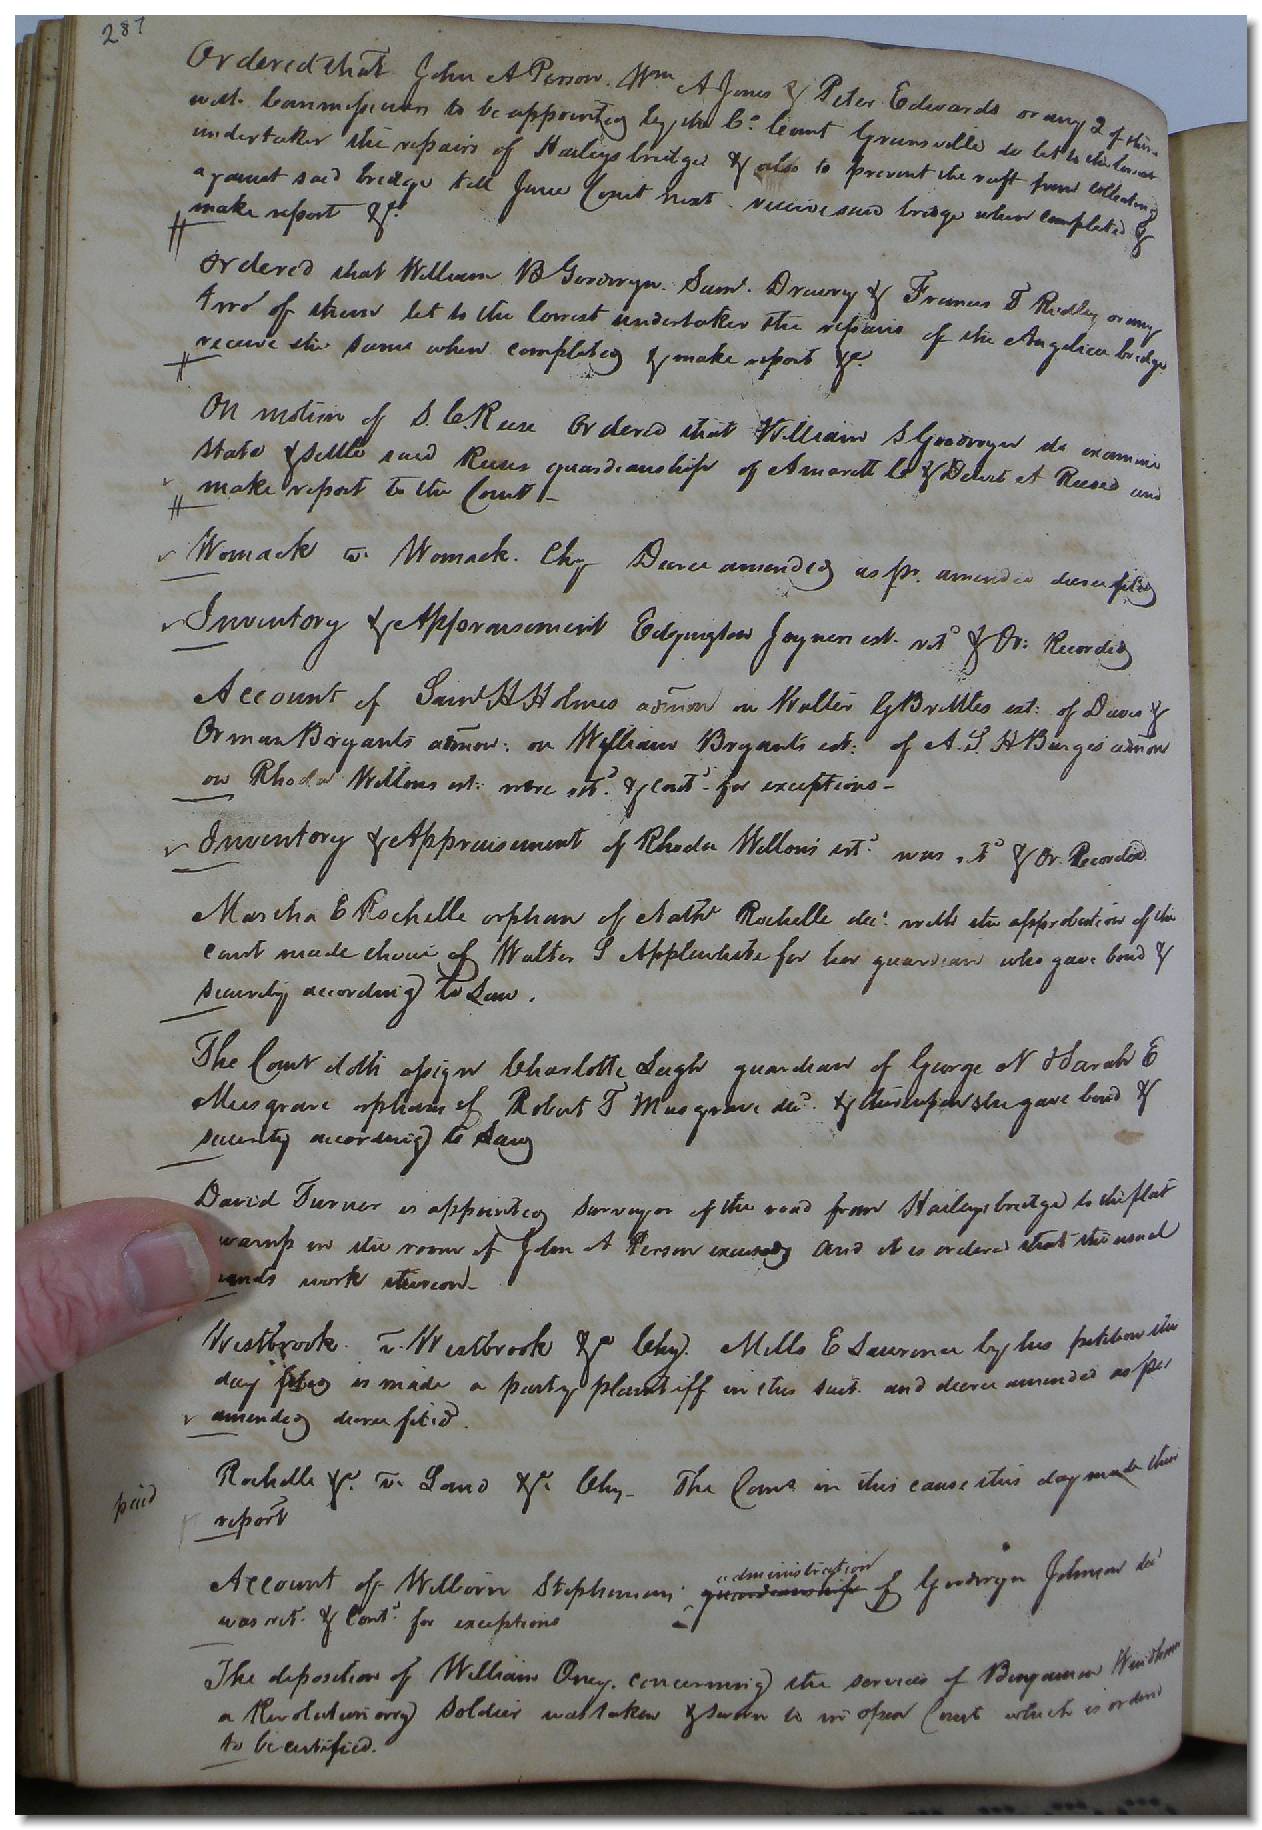 287
Ordered that John A Person. Wm A Jones & Peter Edwards or any 2 of them
with Commissioners to be appointed by the Co. Court Greensville do let to the lowest
undertaker the repairs of Haileys bridge & also to prevent the raft from collecting
against said bridge till June Court next. receive said bridge when completed &
make report &c.
Ordered that William B Goodwyn. Saml. Drewry & Francis T Ridley or any
two of them let to the lowest undertaker the repairs of the Angelica bridge
receive the same when completed & make report &c.
On motion of S. C. Reese Ordered that William S Goodwyn do examine
state & settle said Reeses guardianship of Amarett & A Reese and
make report to the Court -
Womack vs. Womack. Chy Decree amended as pr. amended decree filed
Inventory & Appraisement Edgington Joyners est. retd & Or: Recorded
Account of Saml H Holmes admon on Walter G Brittles est: of Davis &
Orman Bryants admon: on William Bryants est: of A. S. H Burges admon
on Rhoda Willons est: were retd. & contd. for exceptions -
Inventory & Appraisement of Rhoda Willons estd. was retd & Or. Recorded
Martha E Rochelle orphan of Nathl Rochelle decd. with the approbation of the
court made choice of Walter S Applewhite for her guardian who gave bond &
security according to Law.
The Court doth assign Charlotte Leigh guardian of George N & Sarah E
Musgrave orphans of Robert T Musgrave decd. & thereupon she gave bond &
security according to Law
David Turner is appointed surveyor of the road from Haileys bridge to the flat
swamp in the room of John A Person excused and it is ordered that the usual
hands work thereon -
Westbrook. vs. Westbrook &c Chy. Mills E Laurence by his petition this
day filed is made a party plaintiff in this suit. and decree amended as per
amended decree filed.
Rochelle &c. vs. Land &c. Chy - The Comrs in this cause this day made their
paid
report
administration
Account of William Stephensons guardianship of Goodwyn Johnson decd
was ret. & Contd. for exceptions
The deposition of William Oney. concerning the services of Benjamin Windham
a Revolutionary soldier was taken & sworn to in open Court which is ordered
to be certified.